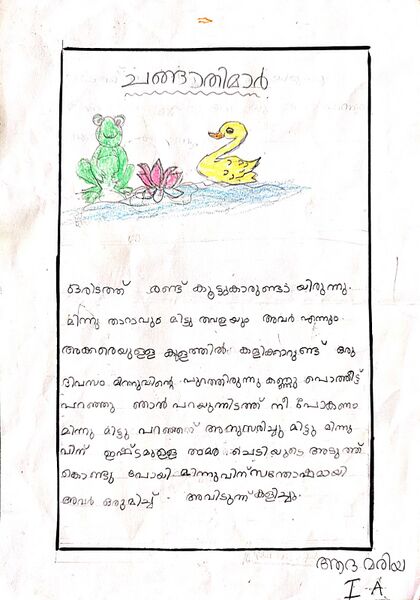 ചങ്ങാതിമാർ
ഒരിടത്ത് രണ്ട് കൂട്ടുകാരുണ്ടാ യിരുന്നു.
മിന്നു താറാവും മിട്ടു തവളയും അവർ എന്നും
അക്കരെയുള്ള കുളത്തിൽ കളിക്കാറുണ്ട് ഒരു
ദിവസം മിന്നുവിന്റെ പുറത്തിരുന്നു കണ്ണു പൊത്തീട്ട്
പറഞ്ഞു ഞാൻ പറയുന്നിടത്ത് നീ പോകണം
മിന്നു മിട്ടു പറഞ്ഞത് അനുസരിച്ചു മിട്ടു മിന്നു
വിന് ഇഷ്ടമുള്ള ആമര ചെടിയുടെ അടുത്ത്
കൊണ്ടു പോയി മിന്നുവിന് സന്തോഷമായി
അവർ ഒരുമിച്ച് അവിടുന്ന് കളിച്ചു.
ആദ മരിയ
I A